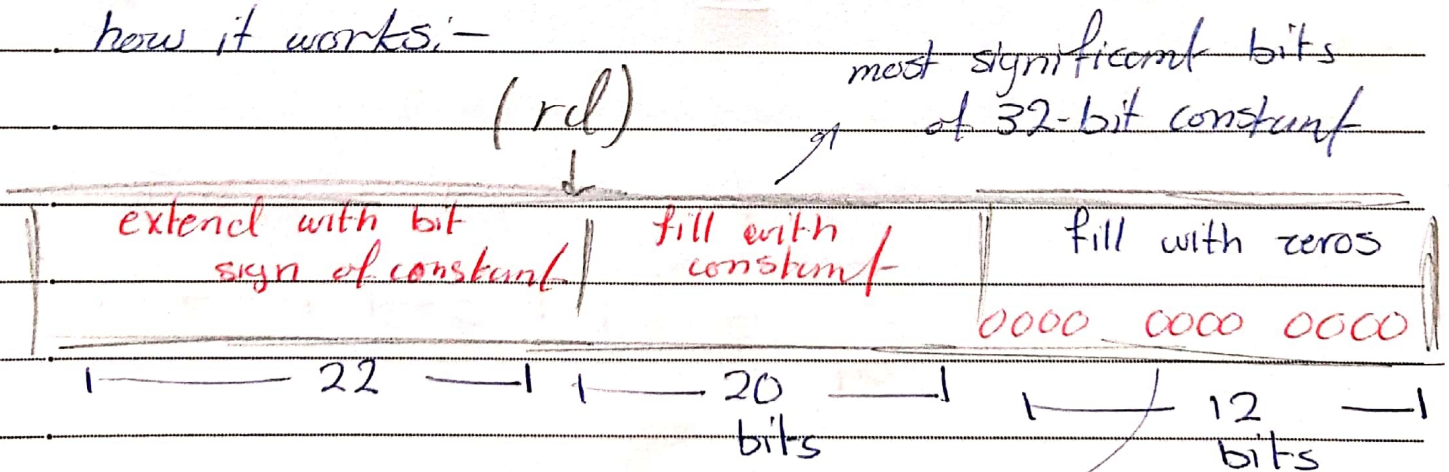 how it works:-
(rd)
most significant bits
of 32-bit constant
extend with bit
sign of constant
fill with
constant
fill with zeros
0000 0000 0000
22
20
bits
12
bits